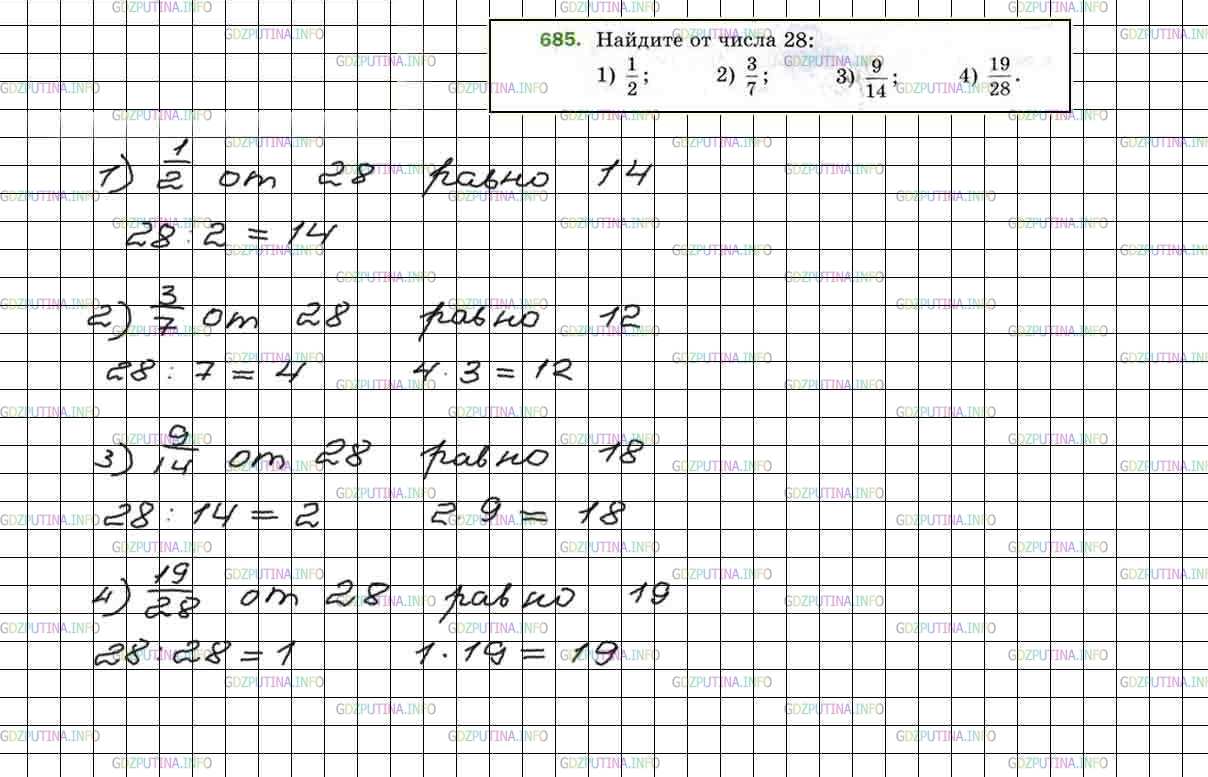 685. Найдите от числа 28:
1) 1/2; 2) 3/7; 3) 9/14; 4) 19/28.
1) 1/2 от 28 равно 14
28 : 2 = 14
2) 3/7 от 28 равно 12
28 : 7 = 4 4 · 3 = 12
3) 9/14 от 28 равно 18
28 : 14 = 2 2 · 9 = 18
4) 19/28 от 28 равно 19
28 : 28 = 1 1 · 19 = 19
GDZPUTINA.INFO